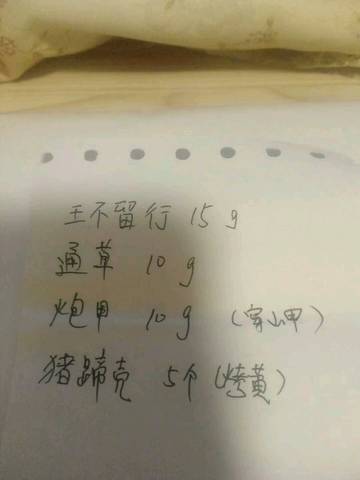 王不留行 15g
通草 10g
炮甲 10g (穿山甲)
猪蹄壳 5个(烤黄)